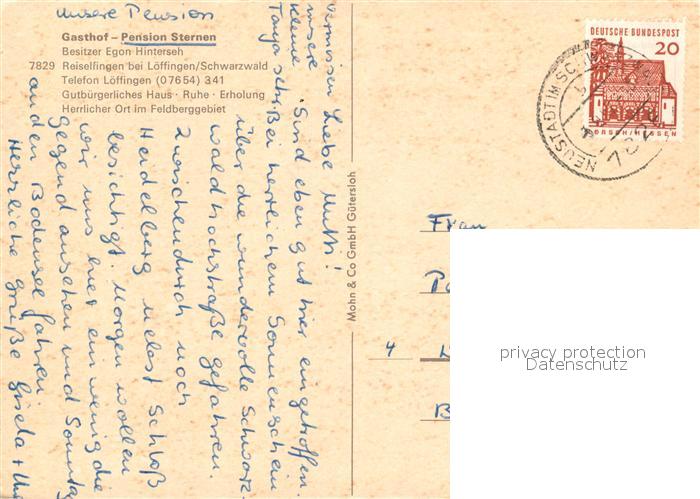 unsere Pension
Gasthof – Pension Sternen
Besitzer Egon Hinterseh
7829 Reiselfingen bei Löffingen/Schwarzwald
Telefon Löffingen (07654) 341
Gutbürgerliches Haus · Ruhe · Erholung
Herrlicher Ort im Feldberggebiet
Liebe Mutti!
Sind eben gut hier eingetroffen.
Bei herrlichem Sonnenschein
über die wundervolle Schwarz-
waldhochstraße gefahren.
Zwischendurch noch
Heidelberg nebst Schloß
besichtigt. Morgen wollen
wir uns hier ein wenig die
Gegend ansehen und Sonntag
an den Bodensee fahren
Herrliche Grüße Gisela +
vermissen
unsere
kleine
Tanja sehr.
Mohn & Co GmbH Gütersloh
DEUTSCHE BUNDESPOST
20
LORSCH/HESSEN
NEUSTADT IM SCHW
782
Frau
4
privacy protection
Datenschutz